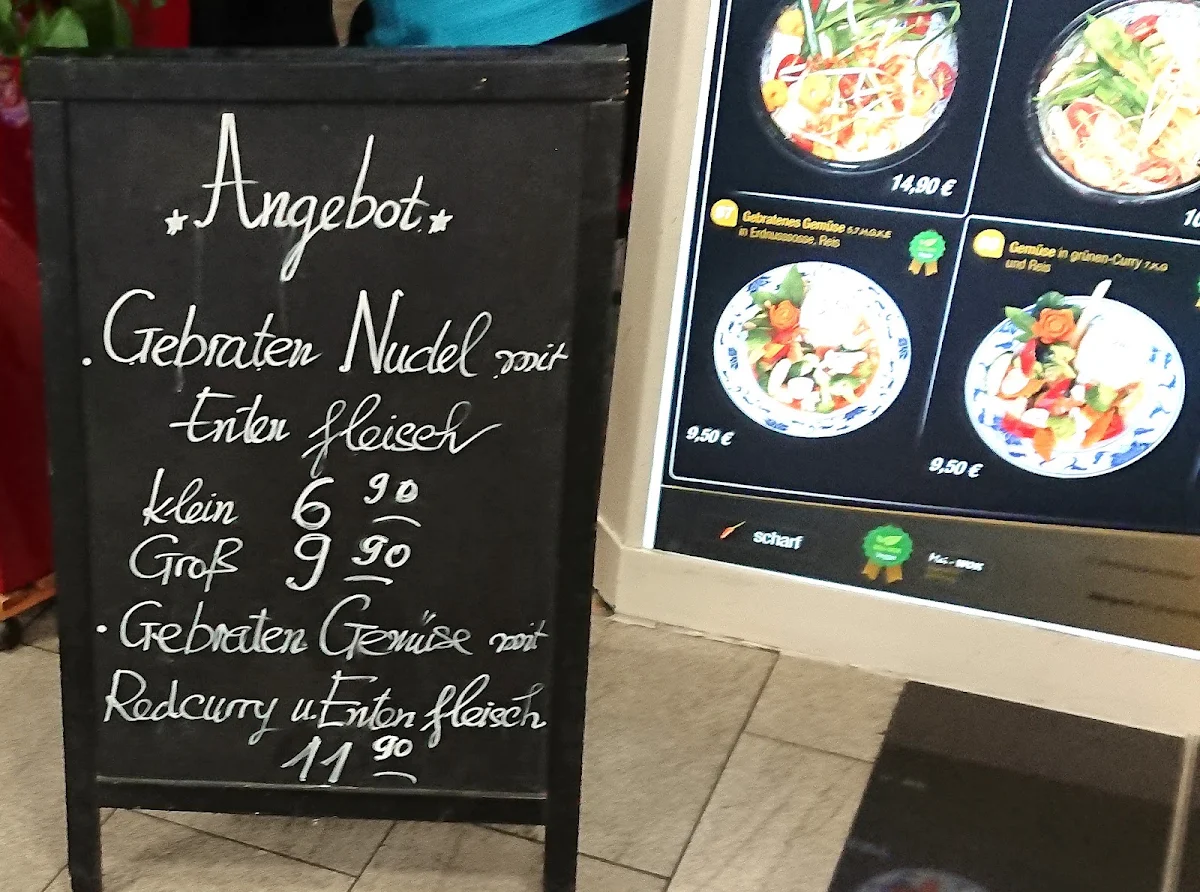 Angebot
. Gebraten Nudel mit
Enten fleisch
klein 6 90
Groß 9 90
• Gebraten Gemüse mit
Redcurry u. Enten fleisch
11 90
14,90 €
10
87 Gebratenes Gemüse 5,7,H,G,K,E
in Erdnusssosse, Reis
9,50 €
Gemüse in grünen-Curry 7,K,G
und Reis
9,50 €
scharf